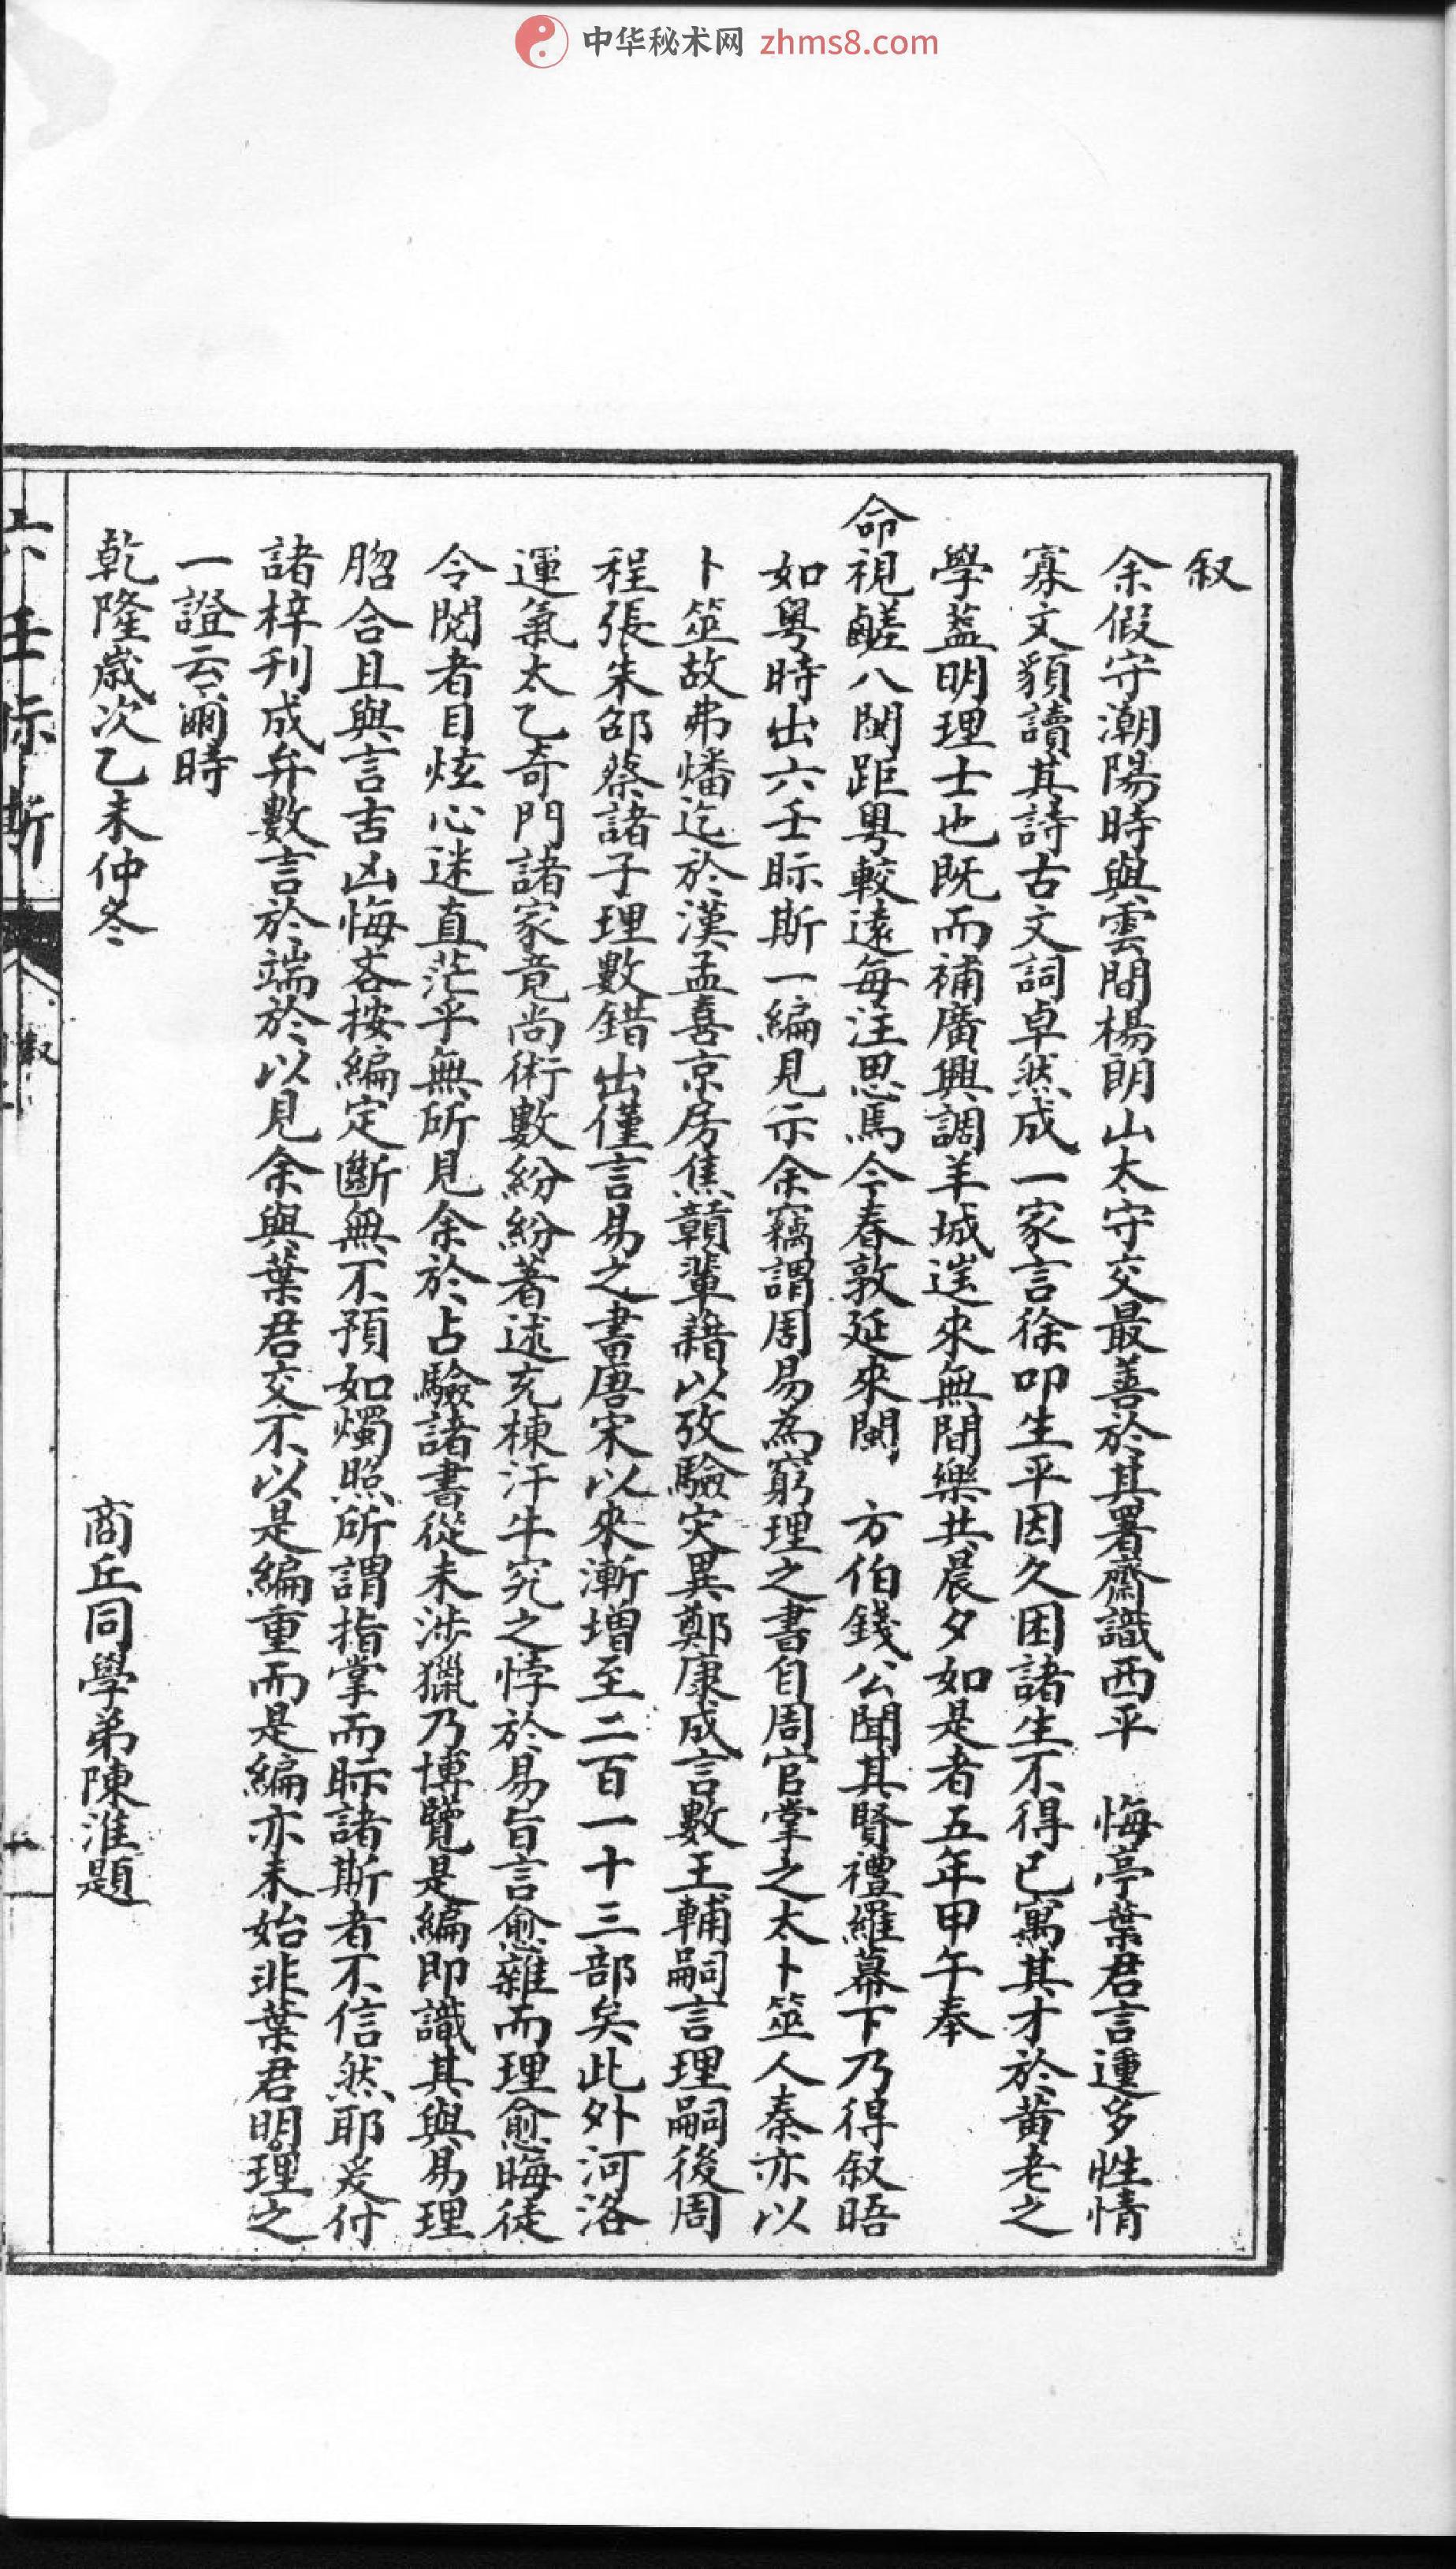 中华秘术网 zhms8.com
叙
余假守潮陽時與雲間楊朗山太守交最善於其署齋識西平 悔亭葉君言遑多性情
寡文貌讀其詩古文詞卓然成一家言徐叩生平因久困諸生不得已寓其才於黃老之
學葢明理士也既而補廣興調羊城迻來無間樂共晨夕如是者五年甲午奉
命視鹺八閩距粤較遠每注思焉今春敦延來閩 方伯錢公聞其賢禮羅幕下乃得叙晤
如粤時出六壬眎斯一編見示余竊謂周易為窮理之書自周官掌之太卜筮人秦亦以
卜筮故弗燔迄於漢孟喜京房焦贛輩藉以攷驗灾異鄭康成言數王輔嗣言理嗣後周
程張朱邵蔡諸子理數錯出僅言易之書唐宋以來漸增至二百一十三部矣此外河洛
運氣太乙奇門諸家竟尚術數紛紛著述充棟汗牛究之悖於易旨言愈雜而理愈晦徒
令閱者目炫心迷直茫乎無所見余於占驗諸書從未涉獵乃博覽是編即識其與易理
脗合且與言吉凶悔吝按編定斷無不預如燭照所謂指掌而眎諸斯者不信然耶爰付
諸梓刋成弁數言於端於以見余與葉君交不以是編重而是編亦未始非葉君明理之
一證云爾時
乾隆歲次乙未仲冬
商丘同學弟陳淮題
六壬眎斯
叙